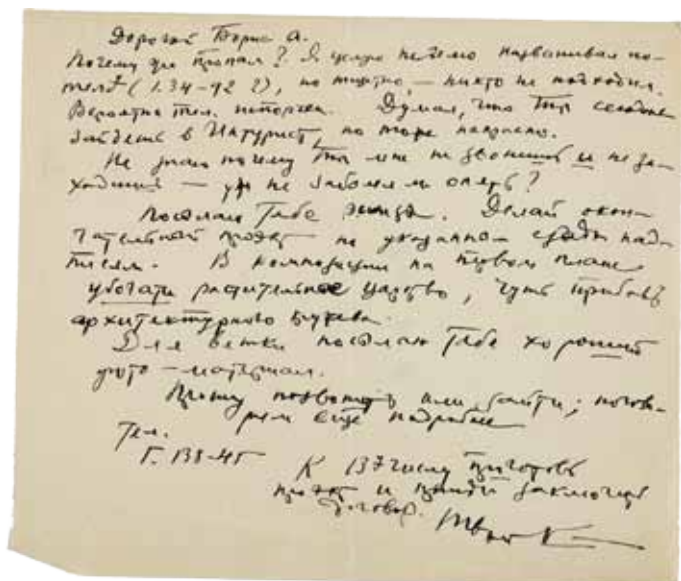 Дорогой Борис А.
Почему ты пропал? Я целую неделю названивал по
тел. (1.34-92?), но тщетно, — никто не подходил.
Вероятно тел. испорчен. Думал, что Ты сегодня
зайдешь в Интурист, но тоже напрасно.
Не знаю почему Ты мне не звонишь и не за-
ходишь — уж не заболел ли опять?
Посылаю Тебе эскиз. Делай окон-
чательный проэкт по указанном над-
писям. В композиции на первом плане
убогати растительное царство, чуть прибавь
архитектурного
Для ветки посылаю Тебе хороший
фото-материал.
Прошу позвонить или зайти; погово-
рим ещё подробнее
Тел.
Г. 138-45
К 13 числу приготовь
проэкт и приходи заключить
договор.